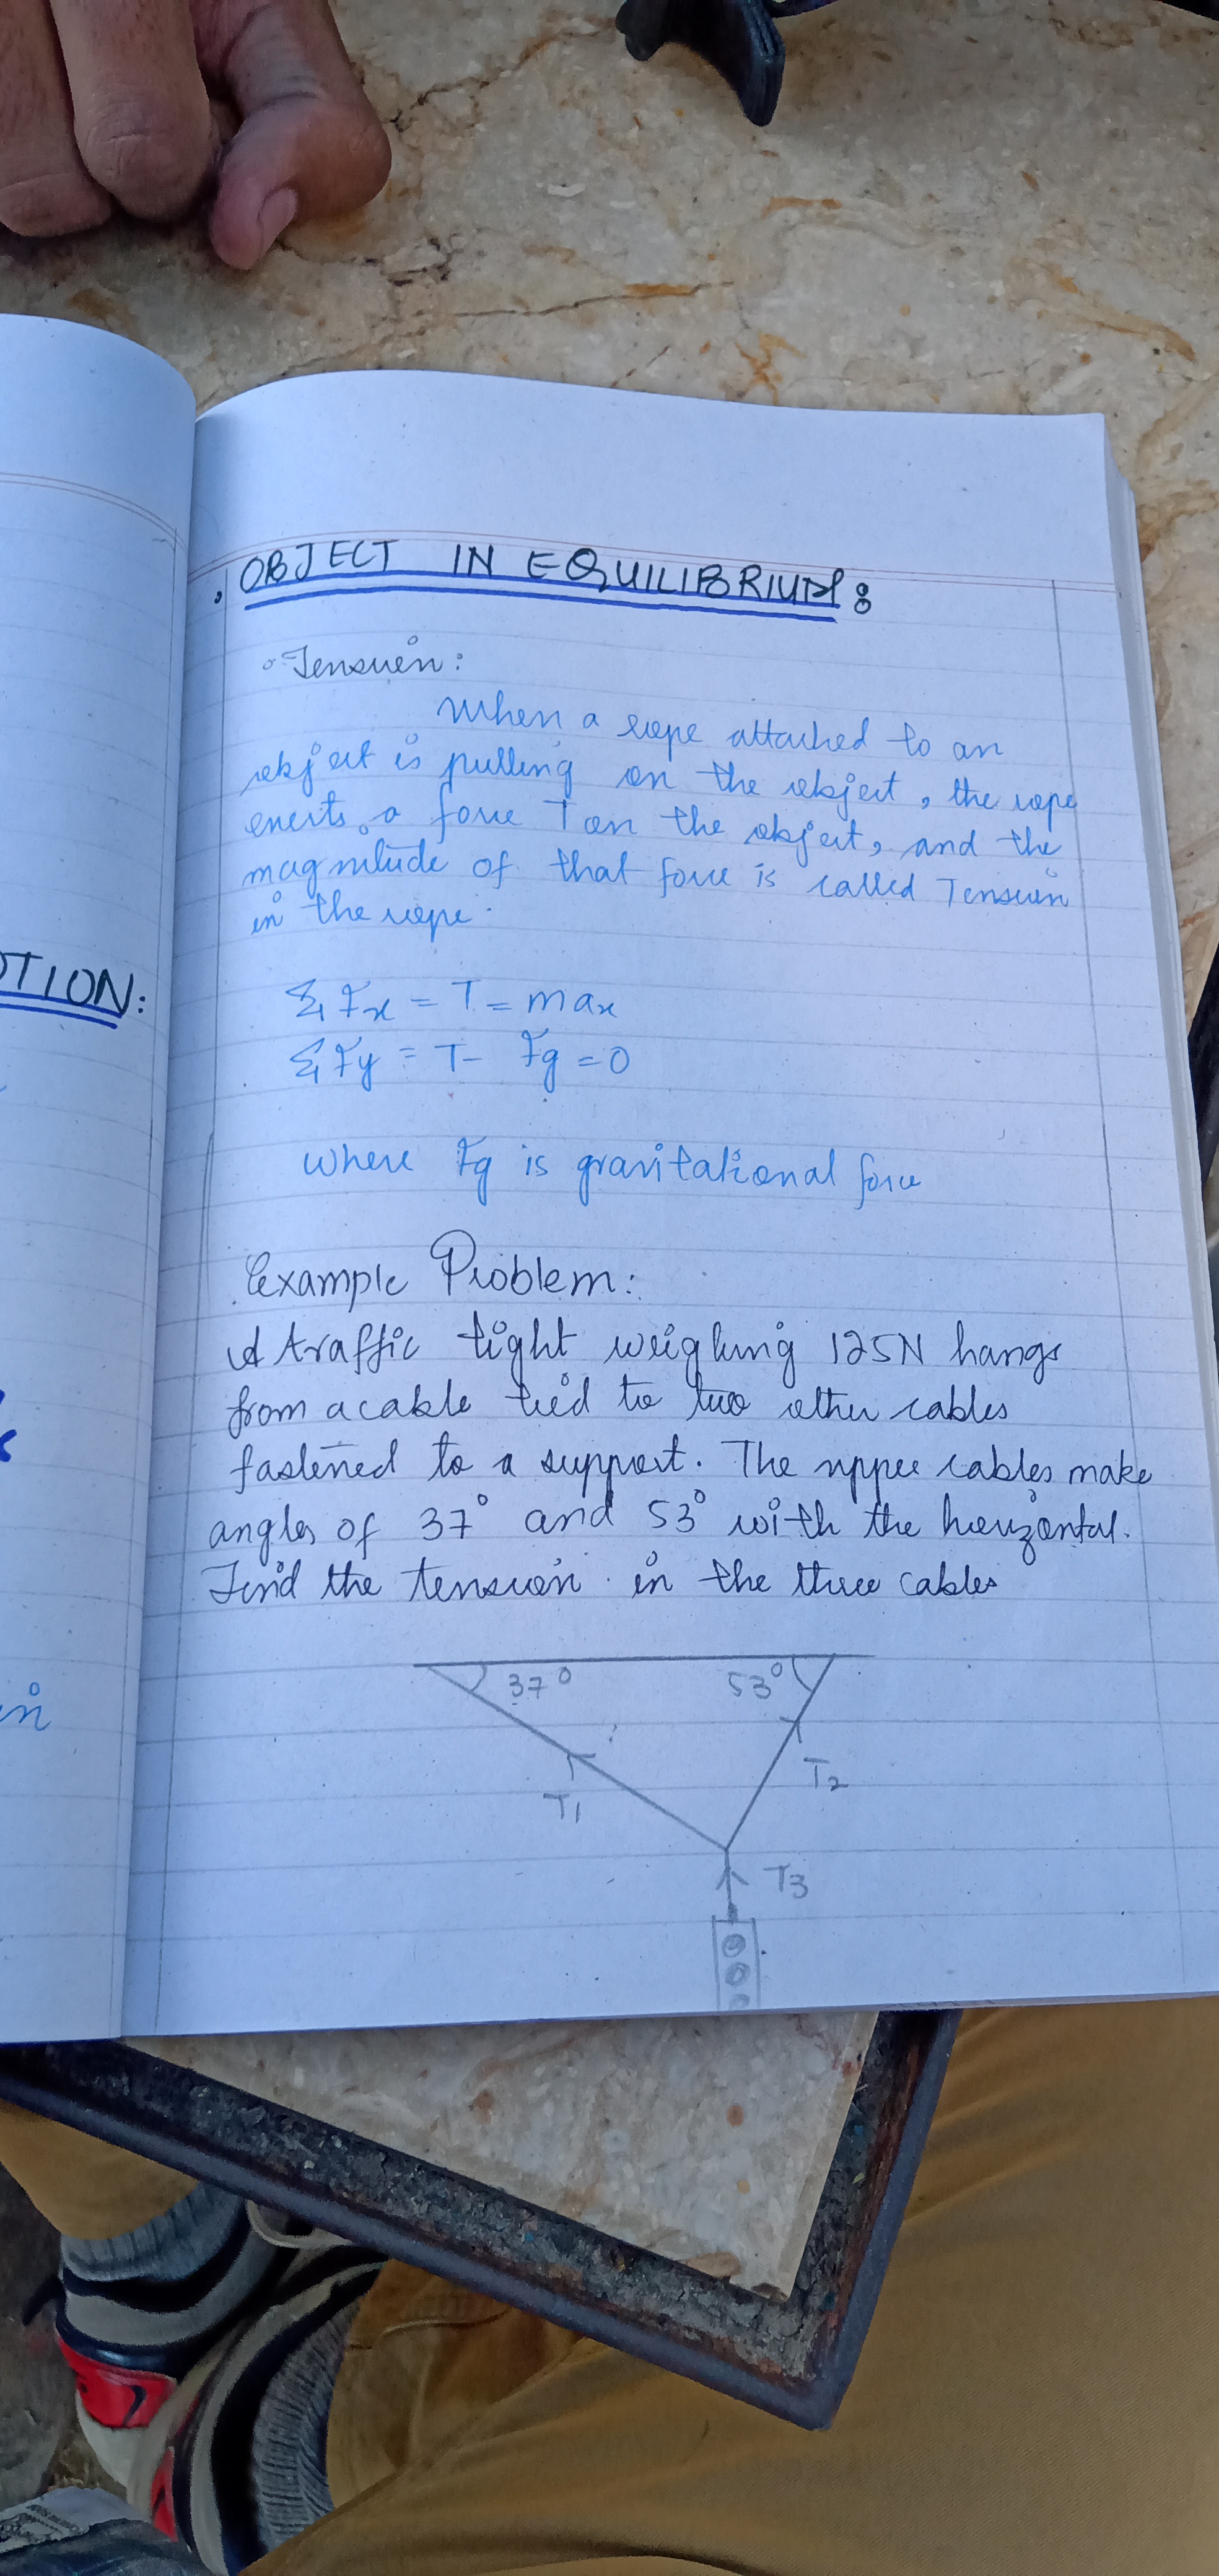 OTION:
in
. OBJECT IN EQUILIBRIUM:
◦ Tension:
When a rope attached to an
object is pulling on the object, the rope
exerts a force T on the object, and the
magnitude of that force is called Tension
in the rope.
Σ Fx = T = max
Σ Fy = T - Fg = 0
where Fg is gravitational force
Example Problem:
A traffic light weighing 125N hangs
from a cable tied to two other cables
fastened to a support. The upper cables make
angles of 37° and 53° with the horizontal.
Find the tension in the three cables
37° 53°
T2
T1
T3